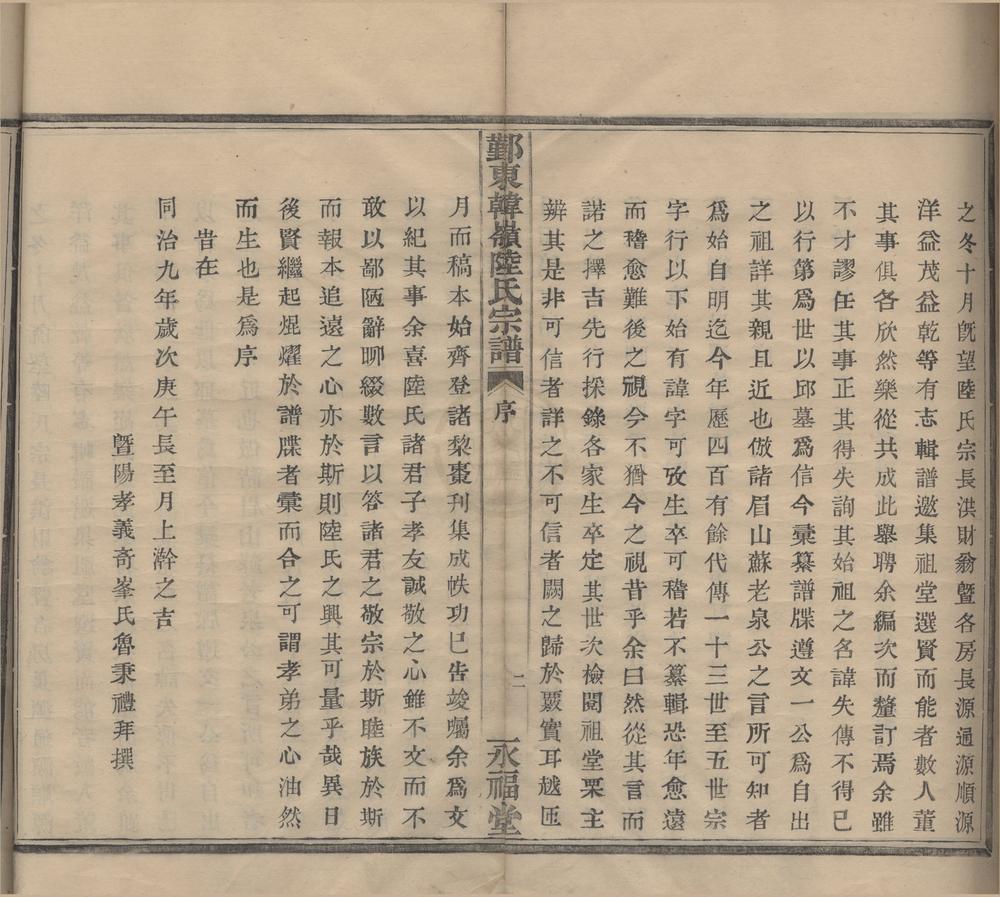 之冬十月旣望陸氏宗長洪財翁曁各房長源通源順源
洋益茂益乾等有志輯譜邀集祖堂選賢而能者數人董
其事俱各欣然樂從共成此舉聘余編次而釐訂焉余雖
不才謬任其事正其得失詢其始祖之名諱失傳不得已
以行第爲世以邱墓爲信今彙纂譜牒遵文一公爲自出
之祖詳其親且近也倣諸眉山蘇老泉公之言所可知者
爲始自明迄今年歷四百有餘代傳一十三世至五世宗
字行以下始有諱字可攷生卒可稽若不纂輯恐年愈遠
而稽愈難後之視今不猶今之視昔乎余曰然從其言而
諾之擇吉先行採錄各家生卒定其世次檢閱祖堂栗主
辨其是非可信者詳之不可信者闕之歸於覈實耳越匝
鄞東韓嶺陸氏宗譜 序 二 永福堂
月而稿本始齊登諸棃棗刊集成帙功巳告竣囑余爲文
以紀其事余喜陸氏諸君子孝友誠敬之心雖不文而不
敢以鄙陋辭聊綴數言以答諸君之敬宗於斯睦族於斯
而報本追遠之心亦於斯則陸氏之興其可量乎哉異日
後賢繼起焜燿於譜牒者彙而合之可謂孝弟之心油然
而生也是爲序
昔在
同治九年歲次庚午長至月上澣之吉
曁陽孝義奇峯氏魯秉禮拜撰